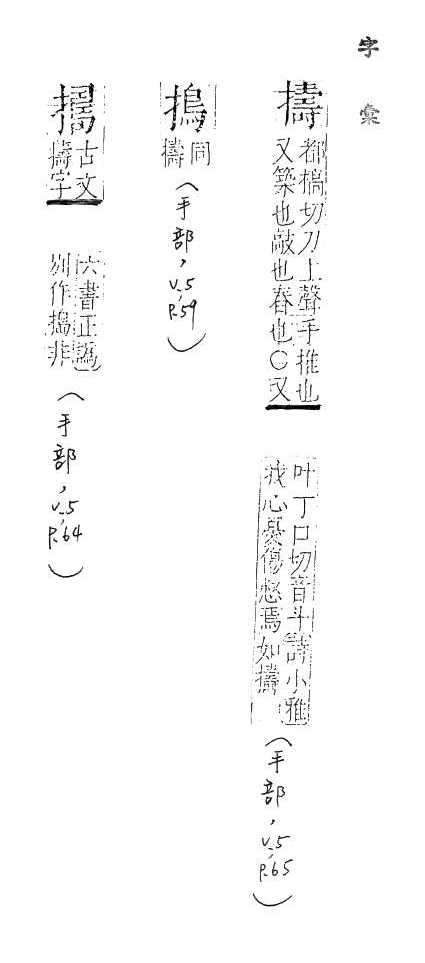 字彙
擣
都槁切刀上聲手推也
又築也敲也舂也○又
叶丁口切音斗詩小雅
我心憂傷惄焉如擣
(手部, v.5, p.65)
搗
同
擣
(手部, v.5, p.59)
古文
擣字
六書正譌
別作搗非
(手部, v.5, p.64)